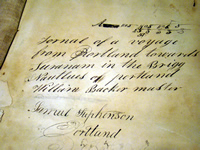 Jornal of a voyage
from Portland towards
Suranam in the Brigg
Nautilus of portland
William Backer master
Samual Stephenson
Portland